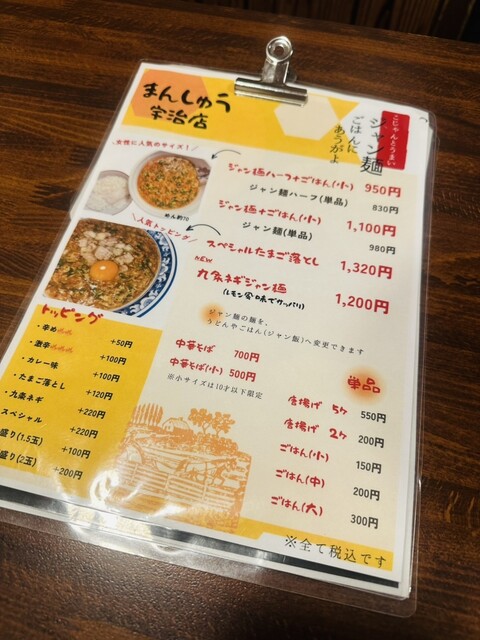 まんしゅう
宇治店
こじゃんとうまい
ジャン麺
ごはんに
あうがよ
女性に人気のサイズ!
めん約70
人気トッピング
ジャン麺ハーフ+ごはん(小) 950円
ジャン麺ハーフ(単品) 830円
ジャン麺+ごはん(小) 1,100円
ジャン麺(単品) 980円
スペシャルたまご落とし 1,320円
NEW
九条ネギジャン麺 1,200円
(レモン風味でサッパリ)
ジャン麺の麺を、
うどんやごはん(ジャン飯)へ変更できます
中華そば 700円
中華そば(小) 500円
※小サイズは10才以下限定
トッピング
・辛め +50円
・激辛 +100円
・カレー味 +100円
・たまご落とし +120円
・九条ネギ +220円
スペシャル +220円
盛り(1.5玉) +100円
盛り(2玉) +200円
単品
唐揚げ 5ヶ 550円
唐揚げ 2ヶ 200円
ごはん(小) 150円
ごはん(中) 200円
ごはん(大) 300円
※全て税込です